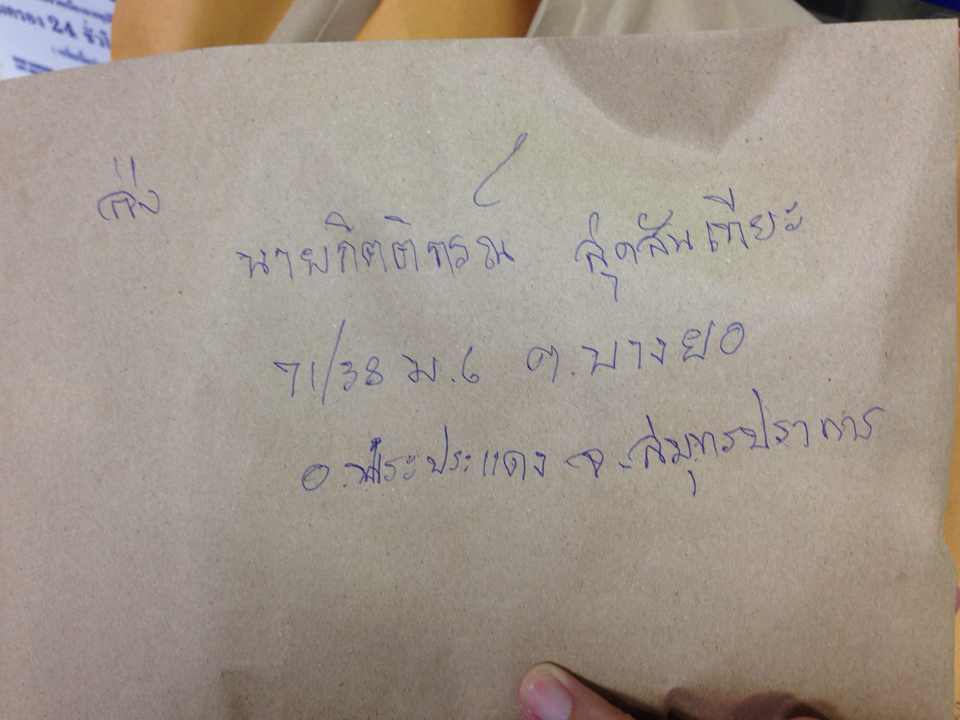 24 ชั่วโ
ส่ง
นายกิตติกรณ์
71/38 ม.6 ต.บางยอ
อ.พระประแดง จ.สมุทรปราการ